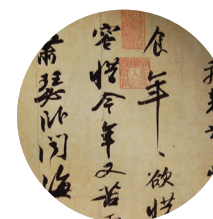 食年〻欲惜
容惜今年又苦
蕭瑟卧聞海